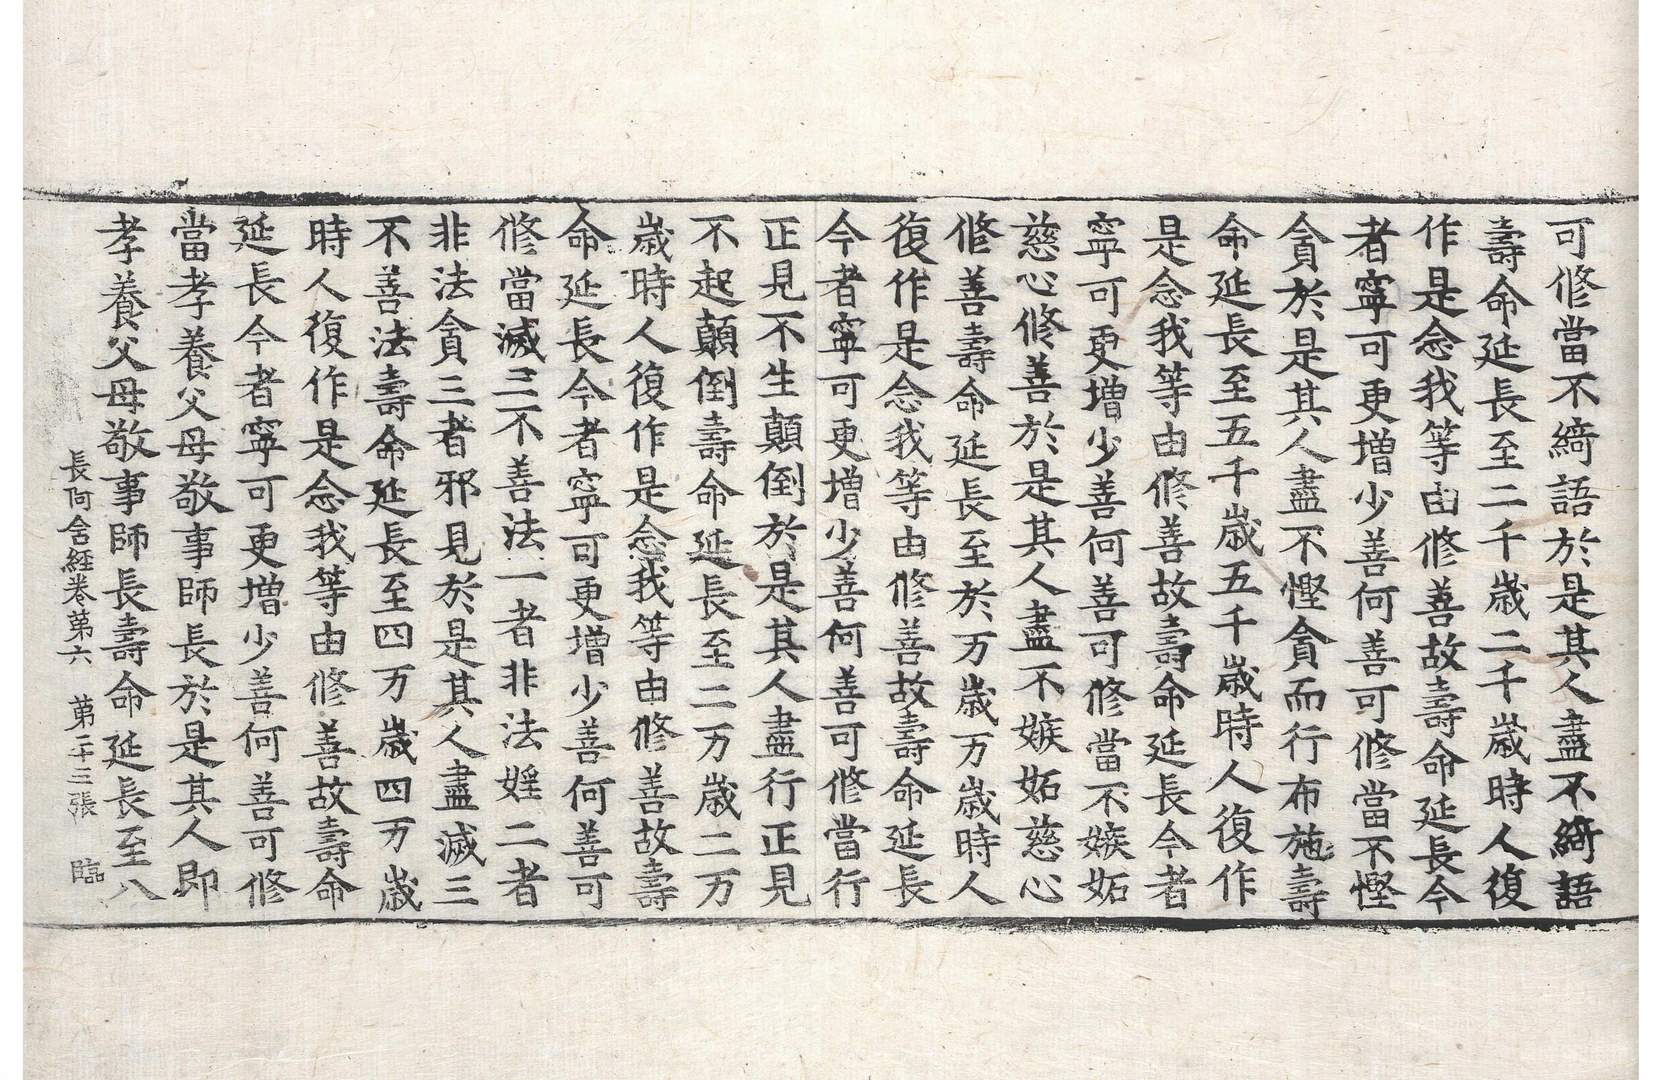 可修當不綺語於是其人盡不綺語
壽命延長至二千歲二千歲時人復
作是念我等由修善故壽命延長今
者寧可更增少善何善可修當不慳
貪於是其人盡不慳貪而行布施壽
命延長至五千歲五千歲時人復作
是念我等由修善故壽命延長今者
寧可更增少善何善可修當不嫉妬
慈心修善於是其人盡不嫉妬慈心
修善壽命延長至於万歲万歲時人
復作是念我等由修善故壽命延長
今者寧可更增少善何善可修當行
正見不生顛倒於是其人盡行正見
不起顛倒壽命延長至二万歲二万
歲時人復作是念我等由修善故壽
命延長今者寧可更增少善何善可
修當滅三不善法一者非法婬二者
非法貪三者邪見於是其人盡滅三
不善法壽命延長至四万歲四万歲
時人復作是念我等由修善故壽命
延長今者寧可更增少善何善可修
當孝養父母敬事師長於是其人即
孝養父母敬事師長壽命延長至八
長阿含經卷第六 第二十三張 臨